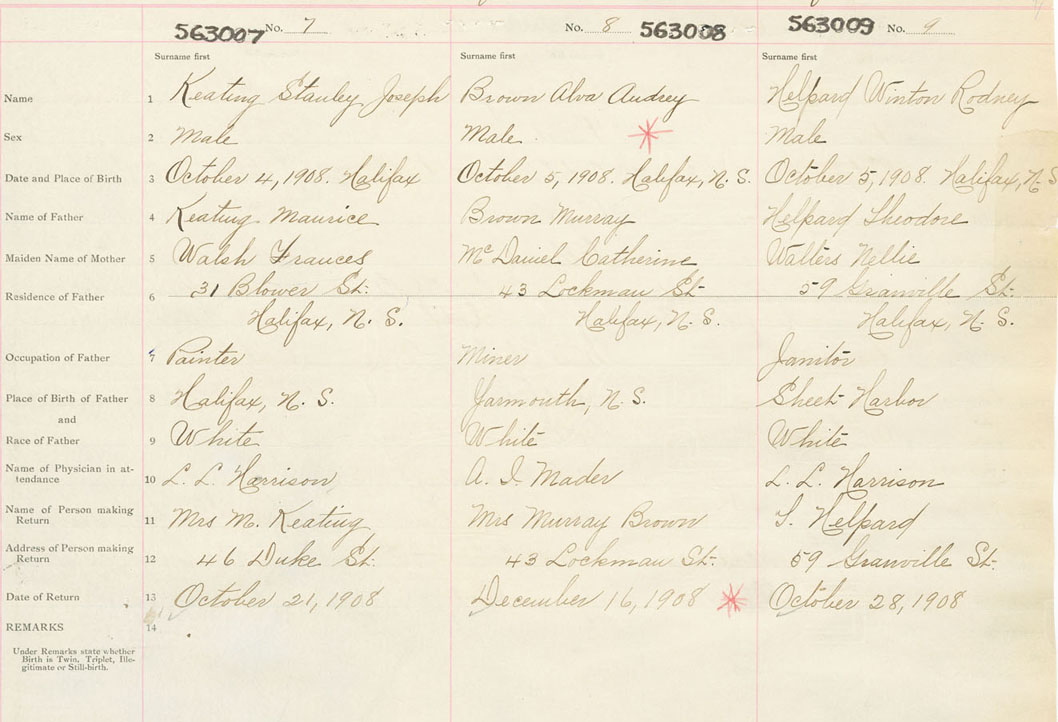 563007 No. 7 No. 8 563008 563009 No. 9
Surname first Surname first Surname first
Name 1 Keating Stanley Joseph Brown Alva Audrey Helpard Winton Rodney
Sex 2 Male Male Male
Date and Place of Birth 3 October 4, 1908. Halifax October 5, 1908. Halifax, N.S. October 5, 1908. Halifax, N.S
Name of Father 4 Keating Maurice Brown Murray Helpard Theodore
Maiden Name of Mother 5 Walsh Frances McDaniel Catherine Walters Nellie
Residence of Father 6 31 Blower St. 43 Lockman St. 59 Granville St.
Halifax, N. S. Halifax, N. S. Halifax, N. S.
Occupation of Father 7 Painter Miner Janitor
Place of Birth of Father 8 Halifax, N. S. Yarmouth, N. S. Sheet Harbor
and
Race of Father 9 White White White
Name of Physician in at-
tendance 10 L. L. Harrison A. I. Mader L. L. Harrison
Name of Person making
Return 11 Mrs M. Keating Mrs Murray Brown T. Helpard
Address of Person making
Return 12 46 Duke St. 43 Lockman St. 59 Granville St.
Date of Return 13 October 21, 1908 December 16, 1908 October 28, 1908
REMARKS 14
Under Remarks state whether
Birth is Twin, Triplet, Ille-
gitimate or Still-birth.